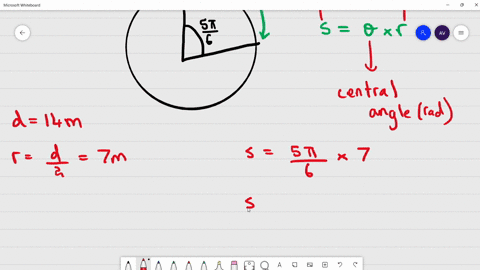 Microsoft Whiteboard
5π/6
s = θ × r
central
angle (rad)
d = 14m
r = d/2 = 7m
s = 5π/6 × 7
s
AV